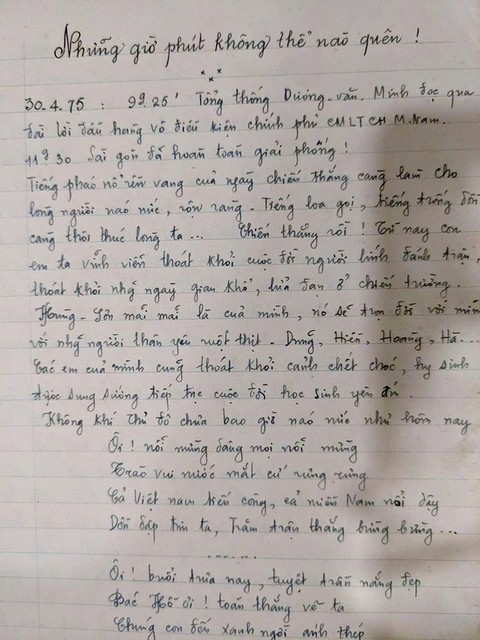 Những giờ phút không thể nào quên !
30.4.75 : 9g 25' Tổng thống Dương-văn-Minh đọc qua
đài lời đầu hàng vô điều kiện chính phủ CMLTCHM.Nam.
11g 30 Sài gòn đã hoàn toàn giải phóng !
Tiếng pháo nổ rền vang của ngày chiến thắng càng làm cho
lòng người náo nức, rộn ràng - Tiếng loa gọi, tiếng trống dồn
càng thôi thúc lòng ta ... Chiến thắng rồi ! Từ nay con
em ta vĩnh viễn thoát khỏi cuộc đời người lính đánh trận,
thoát khỏi nhg ngày gian khổ, lửa đạn ở chiến trường.
Hưng - Sơn mãi mãi là của mình, nó sẽ trọn đời với mình
với nhg người thân yêu ruột thịt - Dung, Hiền, Hoàng, Hà...
Các em của mình cũng thoát khỏi cảnh chết chóc, hy sinh
được sung sướng tiếp tục cuộc đời học sinh yên ấm.
Không khí thủ đô chưa bao giờ náo nức như hôm nay
Ôi ! nỗi mừng dâng mọi nỗi mừng
Trào vui nước mắt cứ rưng rưng
Cả Việt nam tiến công, cả miền Nam nổi dậy
Dồn dập tim ta, Trăm trận thắng bừng bừng ...
Ôi ! buổi trưa nay, tuyệt trần nắng đẹp
Bác Hồ ơi ! toàn thắng về ta
Chúng con đến xanh ngời ánh thép